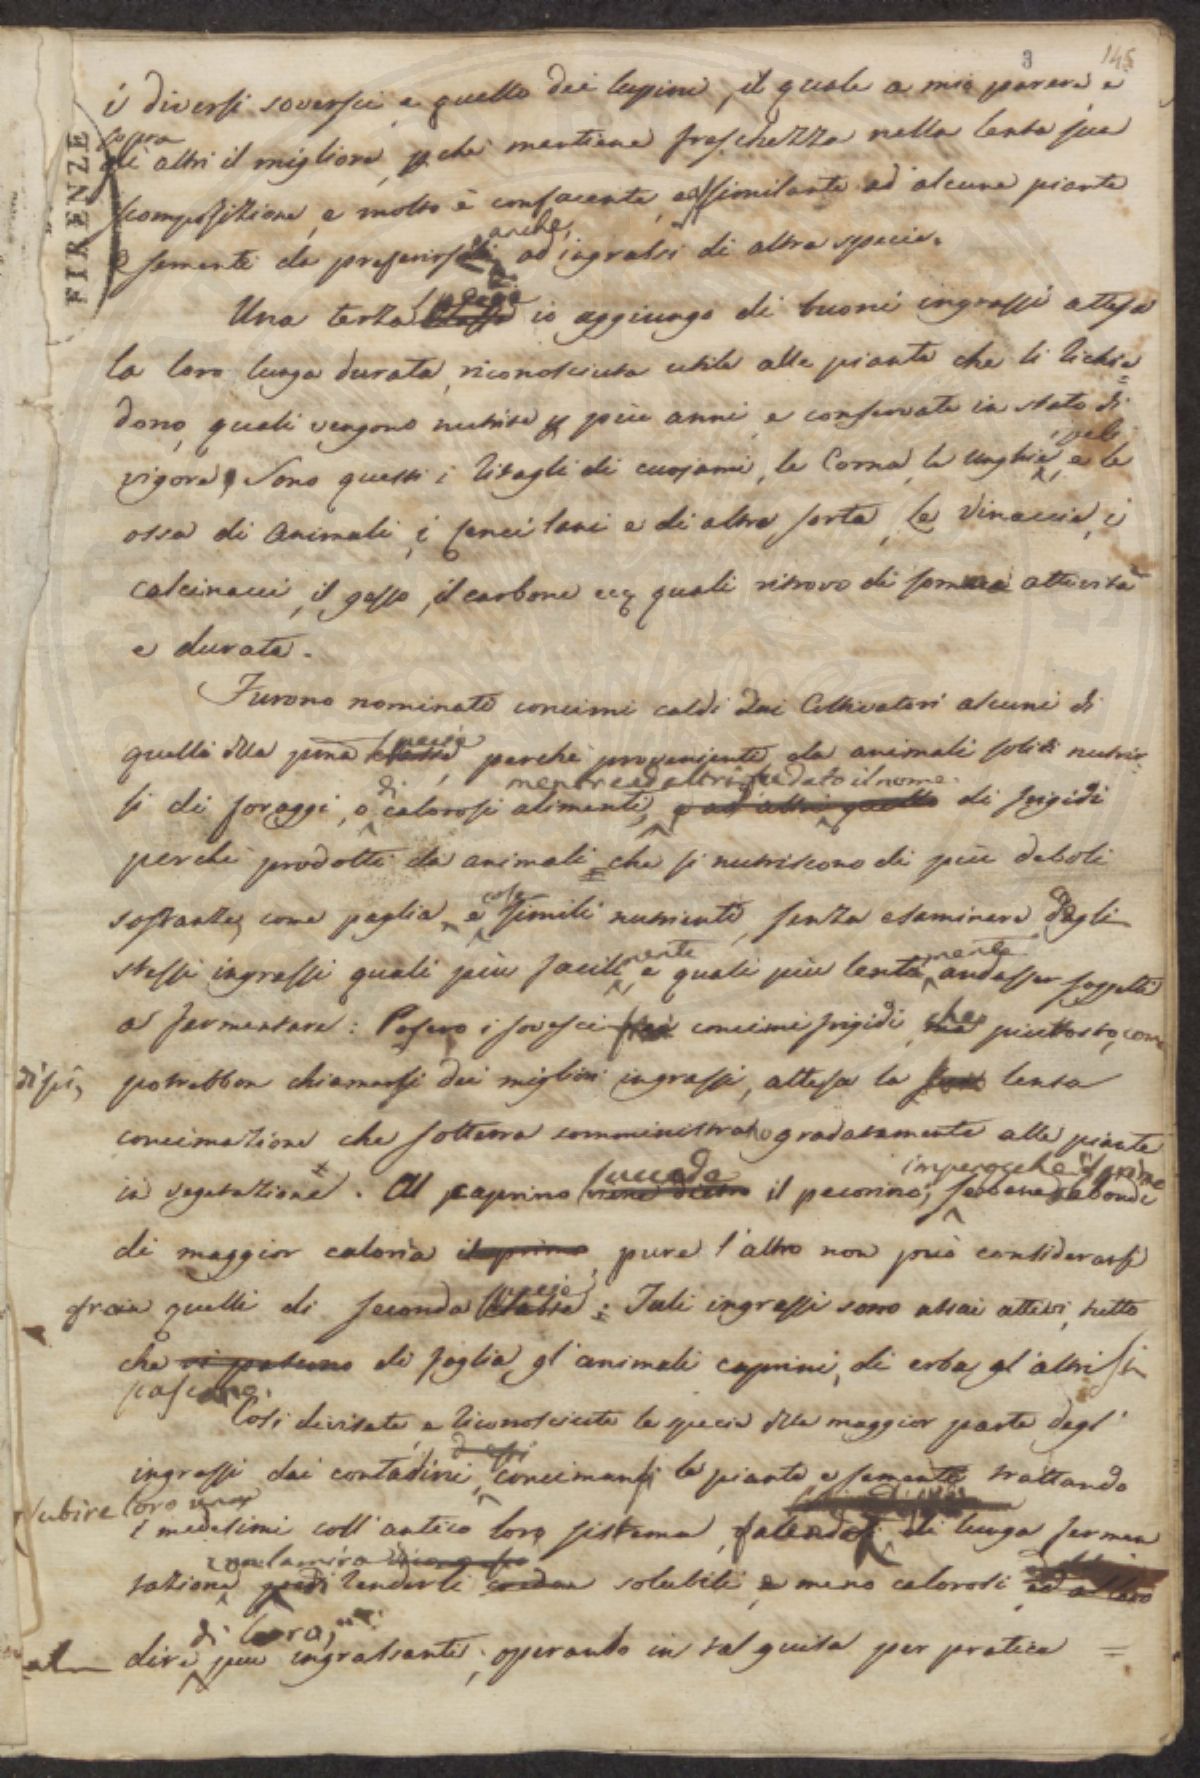 3 145
i diversi soversci e quello dei lupini, il quale a mio parere è
sopra
gli altri il migliore, p che mantiene freschezza nella lenta sua
FIRENZE
scomposizione, e molto è confacente, assimilante ad alcune piante
anche,
e sementi da preferirsi ad ingrassi di altra specie.
specie
Una terza classe io aggiungo di buoni ingrassi attesa
la loro lunga durata, riconosciuta utile alle piante che li richie=
dono, quali vengono nutrite p più anni, e conservate in stato di
, peli
vigore, Sono questi i ritagli di cuojami, le Corna, le unghie, e le
ossa di animali, i cenci lani e di altra sorta, Le Vinaccie, i
calcinacci, il gesso, il carbone ecc quali ritrovo di somma attività
e durata.
Furono nominati concimi caldi dai Coltivatori alcuni di
specie
quelli della prima classe, perchè provenienti da animali soliti nutrir
di mentre ed altri fu dato il nome
si di foraggi, o calorosi alimenti, e ad altri quello di frigidi
perchè prodotti da animali = che si nutriscono di più deboli
cose
sostanze, come paglia, e simili nutrienti, senza esaminare dagli
mente mente
stessi ingrassi quali più facil, e quali più lenta andasser soggetti
che
a fermentare: Posero i sovesci fra i concimi frigidi, ma piuttosto, come
disi,
potrebbon chiamarsi dei migliori ingrassi, attesa la lenta
concimazione che sotterra somministrano gradatamente alle piante
succede imperocchè il primo
in vegetazione. Al caprino viene dietro il pecorino, sebbene abondi
di maggior caloria il primo, pure l'altro non può considerarsi
specie
fra quelli di seconda classe: Tali ingrassi sono assai attivi, tutto
che si pascano di foglia gl'animali caprini, di erba gl'altri si
pascono.
Così divisate, e riconosciute le specie della maggior parte degl'
d essi
ingrassi dai contadini, concimansi le piante e sementi trattando
subire loro una
i medesimi coll'antico loro sistema, di lunga fermen
tazione, renderli solubili, e meno calorosi ed al loro
di loro,
al dire più ingrassanti; operando in tal guisa per pratica =